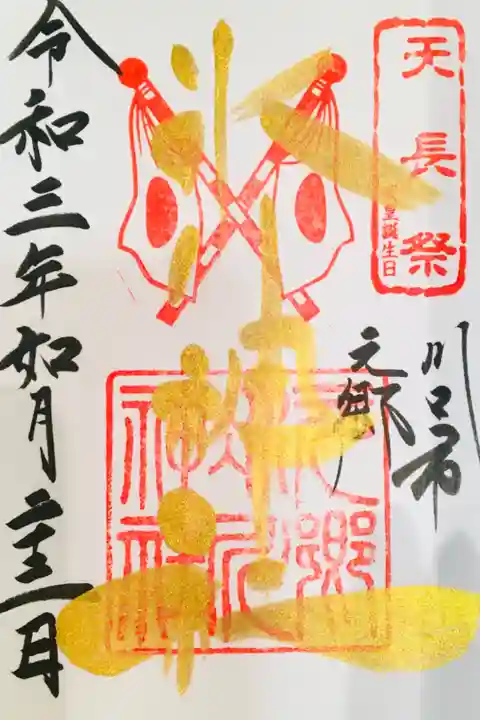 天長祭
天皇誕生日
川口市
元郷
氷川神社
令和三年如月二十三日